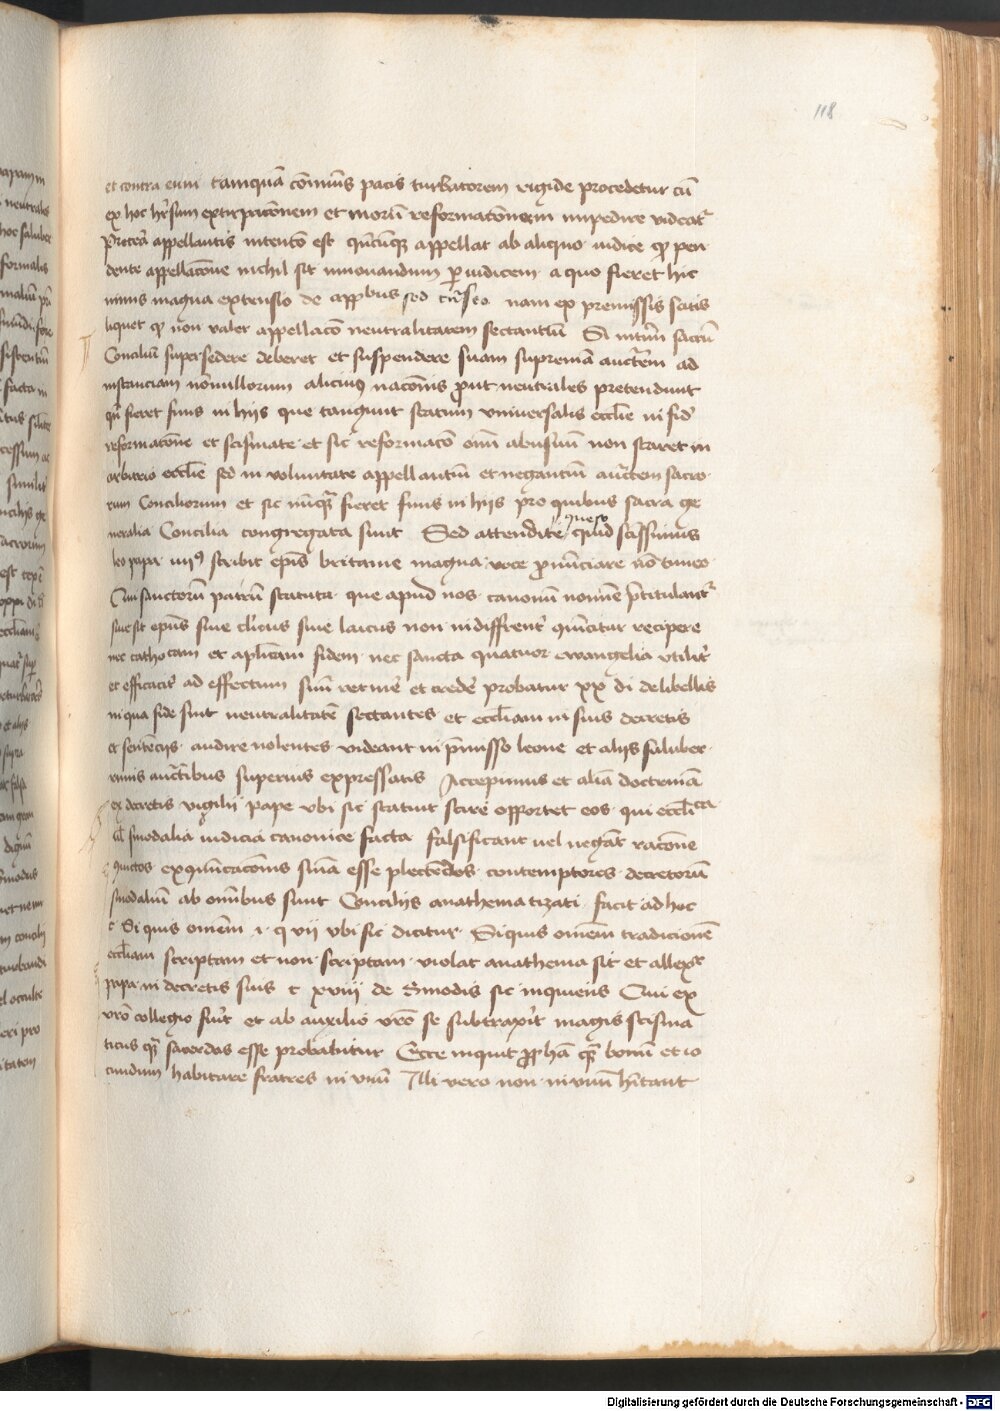 118
et contra eum tamquā cōmuīs pacis turbatorem rigide procedetur cū
ex hoc hr̄sum extirpacōnem et morū reformacōnem impedire videatr̄
Preterea appellantis intentō est qn̄cūqȝ appellat ab aliquo iudice qd̄ pen
dente appellacōne nichil sit innouandum ꝑ iudicem a quo fieret hic
nimis magna extensio de appōbus sed cūr̄ nam ex premissis satis
liquet qd̄ non valet appellacō neutralitatem sectantiū Si intm̄ sacrū
Conciliū supersedere deberet et suspendere suam supremā auctētem ad
instanciam nōnullorum alicuiꝰ nacōnis ꝓut neutrales pretendunt
qn̄ fieret finis in hijs que tangunt statum vniuersalis ecclīe in fide
reformacōne et scismate et sic reformacō om̄ abusuū non staret in
arbitrio ecclīe sed in voluntate appellantiū et negantiū auctēm sacro
rum Conciliorum et sic nūqȝ fieret finis in hijs pro quibus sacra ge
neralia Concilia congregata sunt Sed attendite queso quid scīssimus
leo papa iiijꝰ scribit epīs britanie magna voce ꝓnūciare nō timeo
Cum sanctorū patrū statuta que apud nos canonū nomīe p̄titulantr̄
siue sit epūs siue clīcus siue laicus non indiffrentr̄ qn̄citur recipere
nec catholicam et aplīcam fidem nec sancta quatuor ewangelia vtilitr̄
et efficacitr̄ ad effectum suū retinē et credē probatur xx di de libellis
in qua fide sint neutralitatē sectantes et ecclīam in suis decretis
et sentencijs audire nolentes videant in p̄misso leone et alijs saluber
rimis auctītibus superius expressatis Accepimus et aliā doctrinā
ex decretis vigilij pape vbi sic statuit scire opportet eos qui ecclīca
ul̄ sinodalia iudicia canonice facta falsificant uel negāt racōne
sinā esse plectendos contemptores decretorū
sinodaliū ab omībus sunt Concilijs anathematizati facit ad hoc
c Si quis omēm i q vii vbi sic dicitur Si quis omēm tradicionē
ecclīam scriptam et non scriptam violat anathema sit et allexr̄
papa in decretis suis c xviij de Sinodis sic inquiens Cui ex
vr̄o collegio fuīt et ab auxilio vr̄o se subtraxīt magis scisma
ticus qȝ sacerdos esse probabitur Ecce inquit ꝓpha qȝ bonū et io
cundum habitare fratres in vnū Illi vero non in vnū hītant
Digitalisierung gefördert durch die Deutsche Forschungsgemeinschaft - DFG